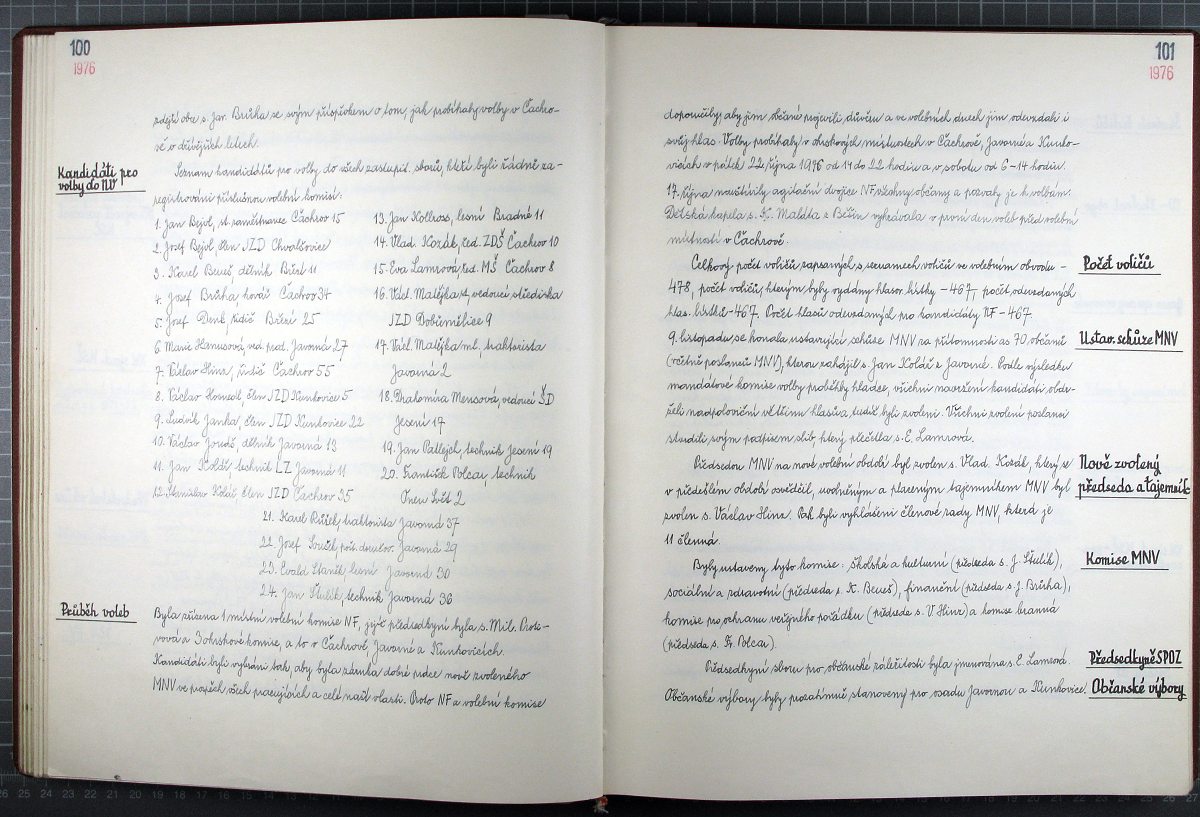 100
1976
zdejší obce s. Jar. Brůha se svým příspěvkem o tom, jak probíhaly volby v Čachro-
vě v dřívějších letech.
Kandidáti pro
volby do NV
Seznam kandidátů pro volby do všech zastupit. sborů, kteří byli řádně za-
registrováni příslušnou volební komisí:
1. Jan Bejvl, st. zaměstnanec Čachrov 15
2. Josef Bejvl, člen JZD Chvalšovice
3. Karel Beneš dělník Březí 11
4. Josef Brůha kovář Čachrov 34
5. Josef Denk, řidič Březí 25
6. Marie Hanusová, ved. prod. Javorná 27
7. Václav Hinz, řidič Čachrov 55
8. Václav Hosnedl, člen JZD Kunkovice 5
9. Ludvík Janka, člen JZD Kunkovice 22
10. Václav Joudš, dělník Javorná 13
11. Jan Kolář technik LZ Javorná 11
12. Stanislav Kolář člen JZD Čachrov 35
13. Jan Kollross, lesní Bradné 11
14. Vlad. Kozák, řed. ZDŠ Čachrov 10
15. Eva Lamrová, řed. MŠ Čachrov 8
16. Václ. Matějka st., vedoucí střediska
JZD Dobřemělice 9
17. Václ. Matějka ml., traktorista
Javorná 2
18. Drahomíra Mensová, vedoucí ŠD
Jesení 17
19. Jan Patlejch, technik Jesení 19
20. František Polcar, technik
Onen Svět 2
21. Karel Růžek, traktorista Javorná 37
22. Josef Soušek, pošt. doručov. Javorná 29
23. Evald Staněk, lesní Javorná 30
24. Jan Štulík, technik Javorná 36
Průběh voleb
Byla zřízena 1 místní volební komise NF, jejíž předsedkyní byla s. Mil. Proti-
vová a 3 okrskové komise, a to v Čachrově, Javorné a Kunkovicích
Kandidáti byli vybráni tak, aby byla záruka dobré práce nově zvoleného
MNV ve prospěch všech pracujících a celé naší vlasti. Proto NF a volební komise
101
1976
doporučily, aby jim občané projevili důvěru a ve volebních dnech jim odevzdali i
svůj hlas. Volby probíhaly v okrskových místnostech v Čachrově, Javorné a Kunko-
vicích v pátek 22. října 1976 od 14 do 22 hodin a v sobotu od 6-14 hodin.
17. října navštívily agitační dvojice NF všechny občany a pozvaly je k volbám.
Dětská kapela s. K. Maldta z Běšin vyhrávala v první den voleb před volební
místností v Čachrově.
Celkový počet voličů zapsaných s seznamech voličů ve volebním obvodu -
Počet voličů
478, počet voličů, kterým byly vydány hlasov. lístky - 467, počet odevzdaných
hlas. lístků - 467. Počet hlasů odevzdaných pro kandidáty NF - 467.
9. listopadu se konala ustavující schůze MNV za přítomnosti as 70 občanů
Ustav. schůze MNV
(včetně poslanců MNV), kterou zahájil s. Jan Kolář z Javorné. Podle výsledku
mandátové komise volby proběhly hladce, všichni navržení kandidáti obdr-
želi nadpoloviční většinu hlasů a tudíž byli zvoleni. Všichni zvolení poslanci
stvrdili svým podpisem slib, který přečetla s. E. Lamrová.
Předsedou MNV na nové volební období byl zvolen s. Vlad. Kozák, který se
Nově zvolený
v předešlém období osvědčil, uvolněným a placeným tajemníkem MNV byl
předseda a tajemník
zvolen s. Václav Hinz. Pak byli vyhlášeni členové rady MNV, která je
11 členná.
Byly ustaveny tyto komise: školská a kulturní (předseda s. J. Štulík),
Komise MNV
sociální a zdravotní (předseda s. K. Beneš), finanční (předseda s. J. Brůha),
komise pro ochranu veřejného pořádku (předseda s. V. Hinz) a komise branná
(předseda s. Fr. Polcar).
Předsedkyní sboru pro občanské záležitosti byla jmenována s. E. Lamrová.
Předsedkyně SPOZ
Občanské výbory byly prozatímně stanoveny pro osadu Javornou a Kunkovice.
Občanské výbory